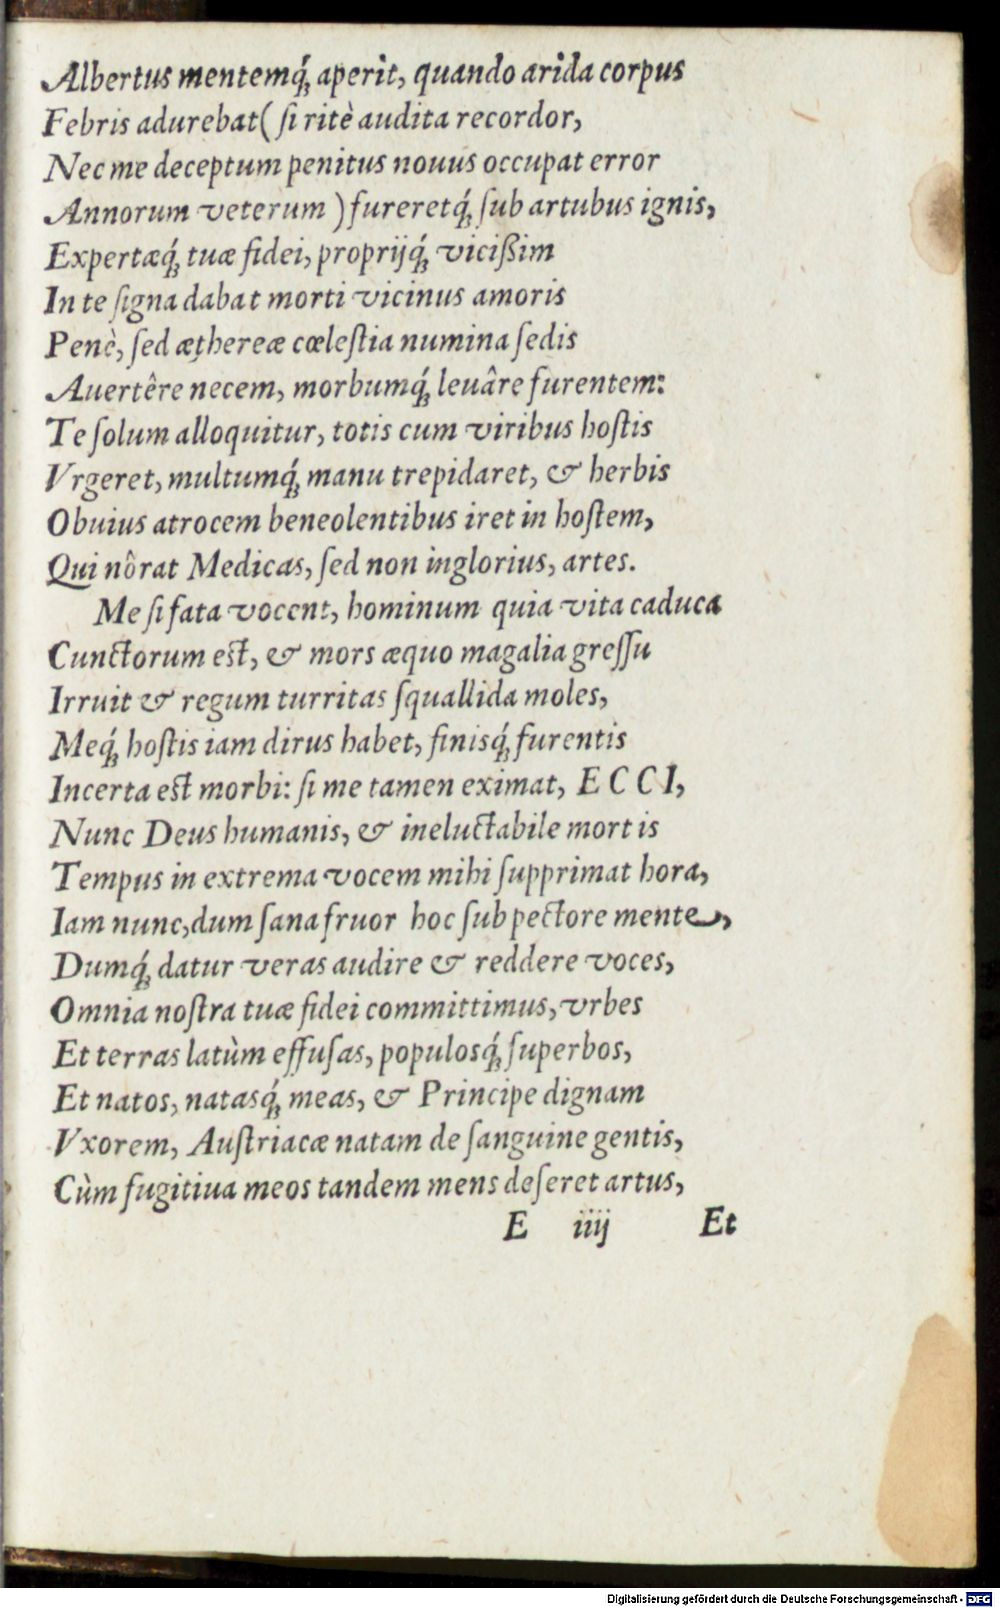 Albertus mentemq́; aperit, quando arida corpus
Febris adurebat( ſi ritè audita recordor,
Nec me deceptum penitus nouus occupat error
Annorum veterum ) fureretq́; ſub artubus ignis,
Expertæq́; tuæ fidei, proprijq́; viciſsim
In te ſigna dabat morti vicinus amoris
Penè, ſed æthereæ cœleſtia numina ſedis
Auertêre necem, morbumq́; leuâre furentem:
Te ſolum alloquitur, totis cum viribus hoſtis
Vrgeret, multumq́; manu trepidaret, & herbis
Obuius atrocem beneolentibus iret in hoſtem,
Qui nôrat Medicas, ſed non inglorius, artes.
Me ſi fata vocent, hominum quia vita caduca
Cunctorum eſt, & mors æquo magalia greſſu
Irruit & regum turritas ſquallida moles,
Meq́; hoſtis iam dirus habet, finisq́; furentis
Incerta eſt morbi: ſi me tamen eximat, ECCI,
Nunc Deus humanis, & ineluctabile mortis
Tempus in extrema vocem mihi ſupprimat hora,
Iam nunc, dum ſana fruor hoc ſub pectore mente,
Dumq́; datur veras audire & reddere voces,
Omnia noſtra tuæ fidei committimus, vrbes
Et terras latùm effuſas, populosq́; ſuperbos,
Et natos, natasq́; meas, & Principe dignam
Vxorem, Auſtriacæ natam de ſanguine gentis,
Cùm fugitiua meos tandem mens deſeret artus,
E iiij Et
Digitalisierung gefördert durch die Deutsche Forschungsgemeinschaft - DFG